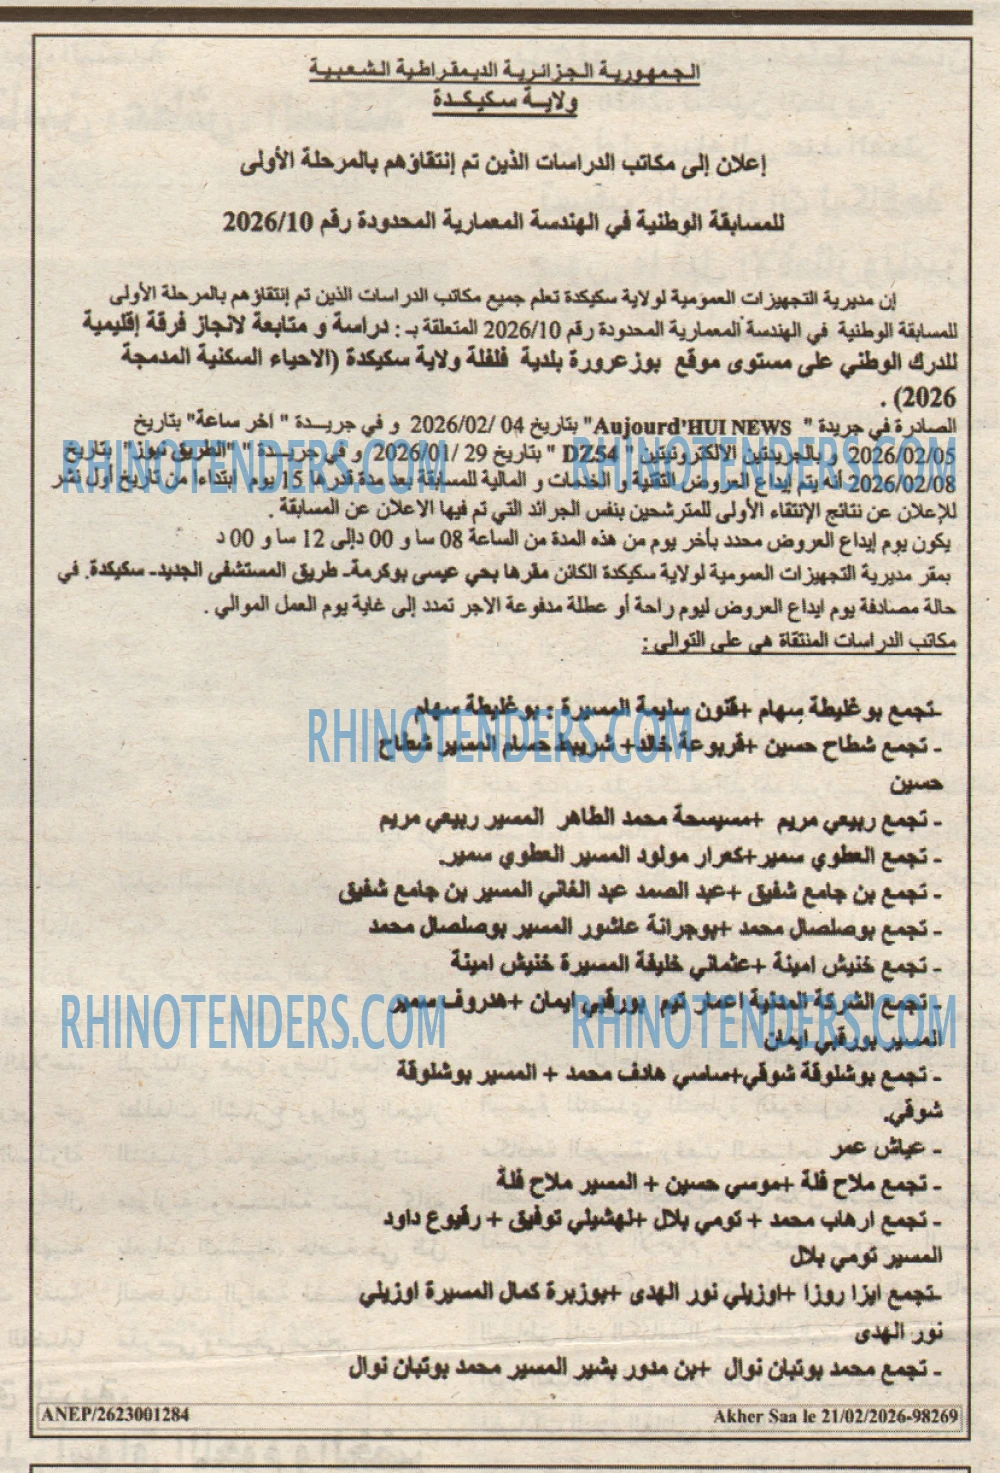 الجمهورية الجزائرية الديمقراطية الشعبية
ولاية سكيكدة
إعلان إلى مكاتب الدراسات الذين تم إنتقاؤهم بالمرحلة الأولى
للمسابقة الوطنية في الهندسة المعمارية المحدودة رقم 2026/10
إن مديرية التجهيزات العمومية لولاية سكيكدة تعلم جميع مكاتب الدراسات الذين تم إنتقاؤهم بالمرحلة الأولى
للمسابقة الوطنية في الهندسة المعمارية المحدودة رقم 2026/10 المتعلقة بـ : دراسة و متابعة لانجاز فرقة إقليمية
للدرك الوطني على مستوى موقع بوزعرورة بلدية فلفلة ولاية سكيكدة (الاحياء السكنية المدمجة
2026) .
الصادرة في جريدة " Aujourd'HUI NEWS" بتاريخ 04 /2026/02 و في جريــدة " اخر ساعة" بتاريخ
2026/02/05 و بالجريدتين الالكترونيتين " DZ54 " بتاريخ 29 /2026/01 و في جريــدة " "الطريق نيوز" بتاريخ
2026/02/08 أنه يتم إيداع العروض التقنية و الخدمات و المالية للمسابقة بعد مدة قدرها 15 يوم ابتداءا من تاريخ أول نشر
للإعلان عن نتائج الإنتقاء الأولى للمترشحين بنفس الجرائد التي تم فيها الاعلان عن المسابقة .
يكون يوم إيداع العروض محدد بأخر يوم من هذه المدة من الساعة 08 سا و 00 دإلى 12 سا و 00 د
بمقر مديرية التجهيزات العمومية لولاية سكيكدة الكائن مقرها بحي عيسى بوكرمة- طريق المستشفى الجديد- سكيكدة. في
حالة مصادفة يوم ايداع العروض ليوم راحة أو عطلة مدفوعة الاجر تمدد إلى غاية يوم العمل الموالي .
مكاتب الدراسات المنتقاة هي على التوالي :
-تجمع بوغليطة سهام +قنون سليمة المسيرة : بوغليطة سهام
- تجمع شطاح حسين +قربوعة خالد+ شريبط حسام المسير شطاح
حسين
- تجمع ربيعي مريم +مسيسحة محمد الطاهر المسير ربيعي مريم
- تجمع العطوي سمير+كعرار مولود المسير العطوي سمير.
- تجمع بن جامع شفيق +عبد الصمد عبد الغاني المسير بن جامع شفيق
- تجمع بوصلصال محمد +بوجرانة عاشور المسير بوصلصال محمد
- تجمع خنيش امينة +عثماني خليفة المسيرة خنيش امينة
- تجمع الشركة المدنية اعمار تيم بورقبي ايمان +هدروف سمير
المسير بورقبي ايمان
- تجمع بوشلوقة شوقي+ساسي هاتف محمد + المسير بوشلوقة
شوقي.
- عياش عمر
- تجمع ملاح فلة +موسي حسين + المسير ملاح فلة
- تجمع ارهاب محمد + تومي بلال +لهشيلي توفيق + رقيوع داود
المسير تومي بلال
-تجمع ايزا روزا +اوزيلي نور الهدى +بوزبرة كمال المسيرة اوزيلي
نور الهدى
- تجمع محمد بوتبان نوال +بن مدور بشير المسير محمد بوتبان نوال
ANEP/2623001284
Akher Saa le 21/02/2026-98269
RHINOTENDERS.COM
RHINOTENDERS.COM
RHINOTENDERS.COM
RHINOTENDERS.COM
RHINOTENDERS.COM